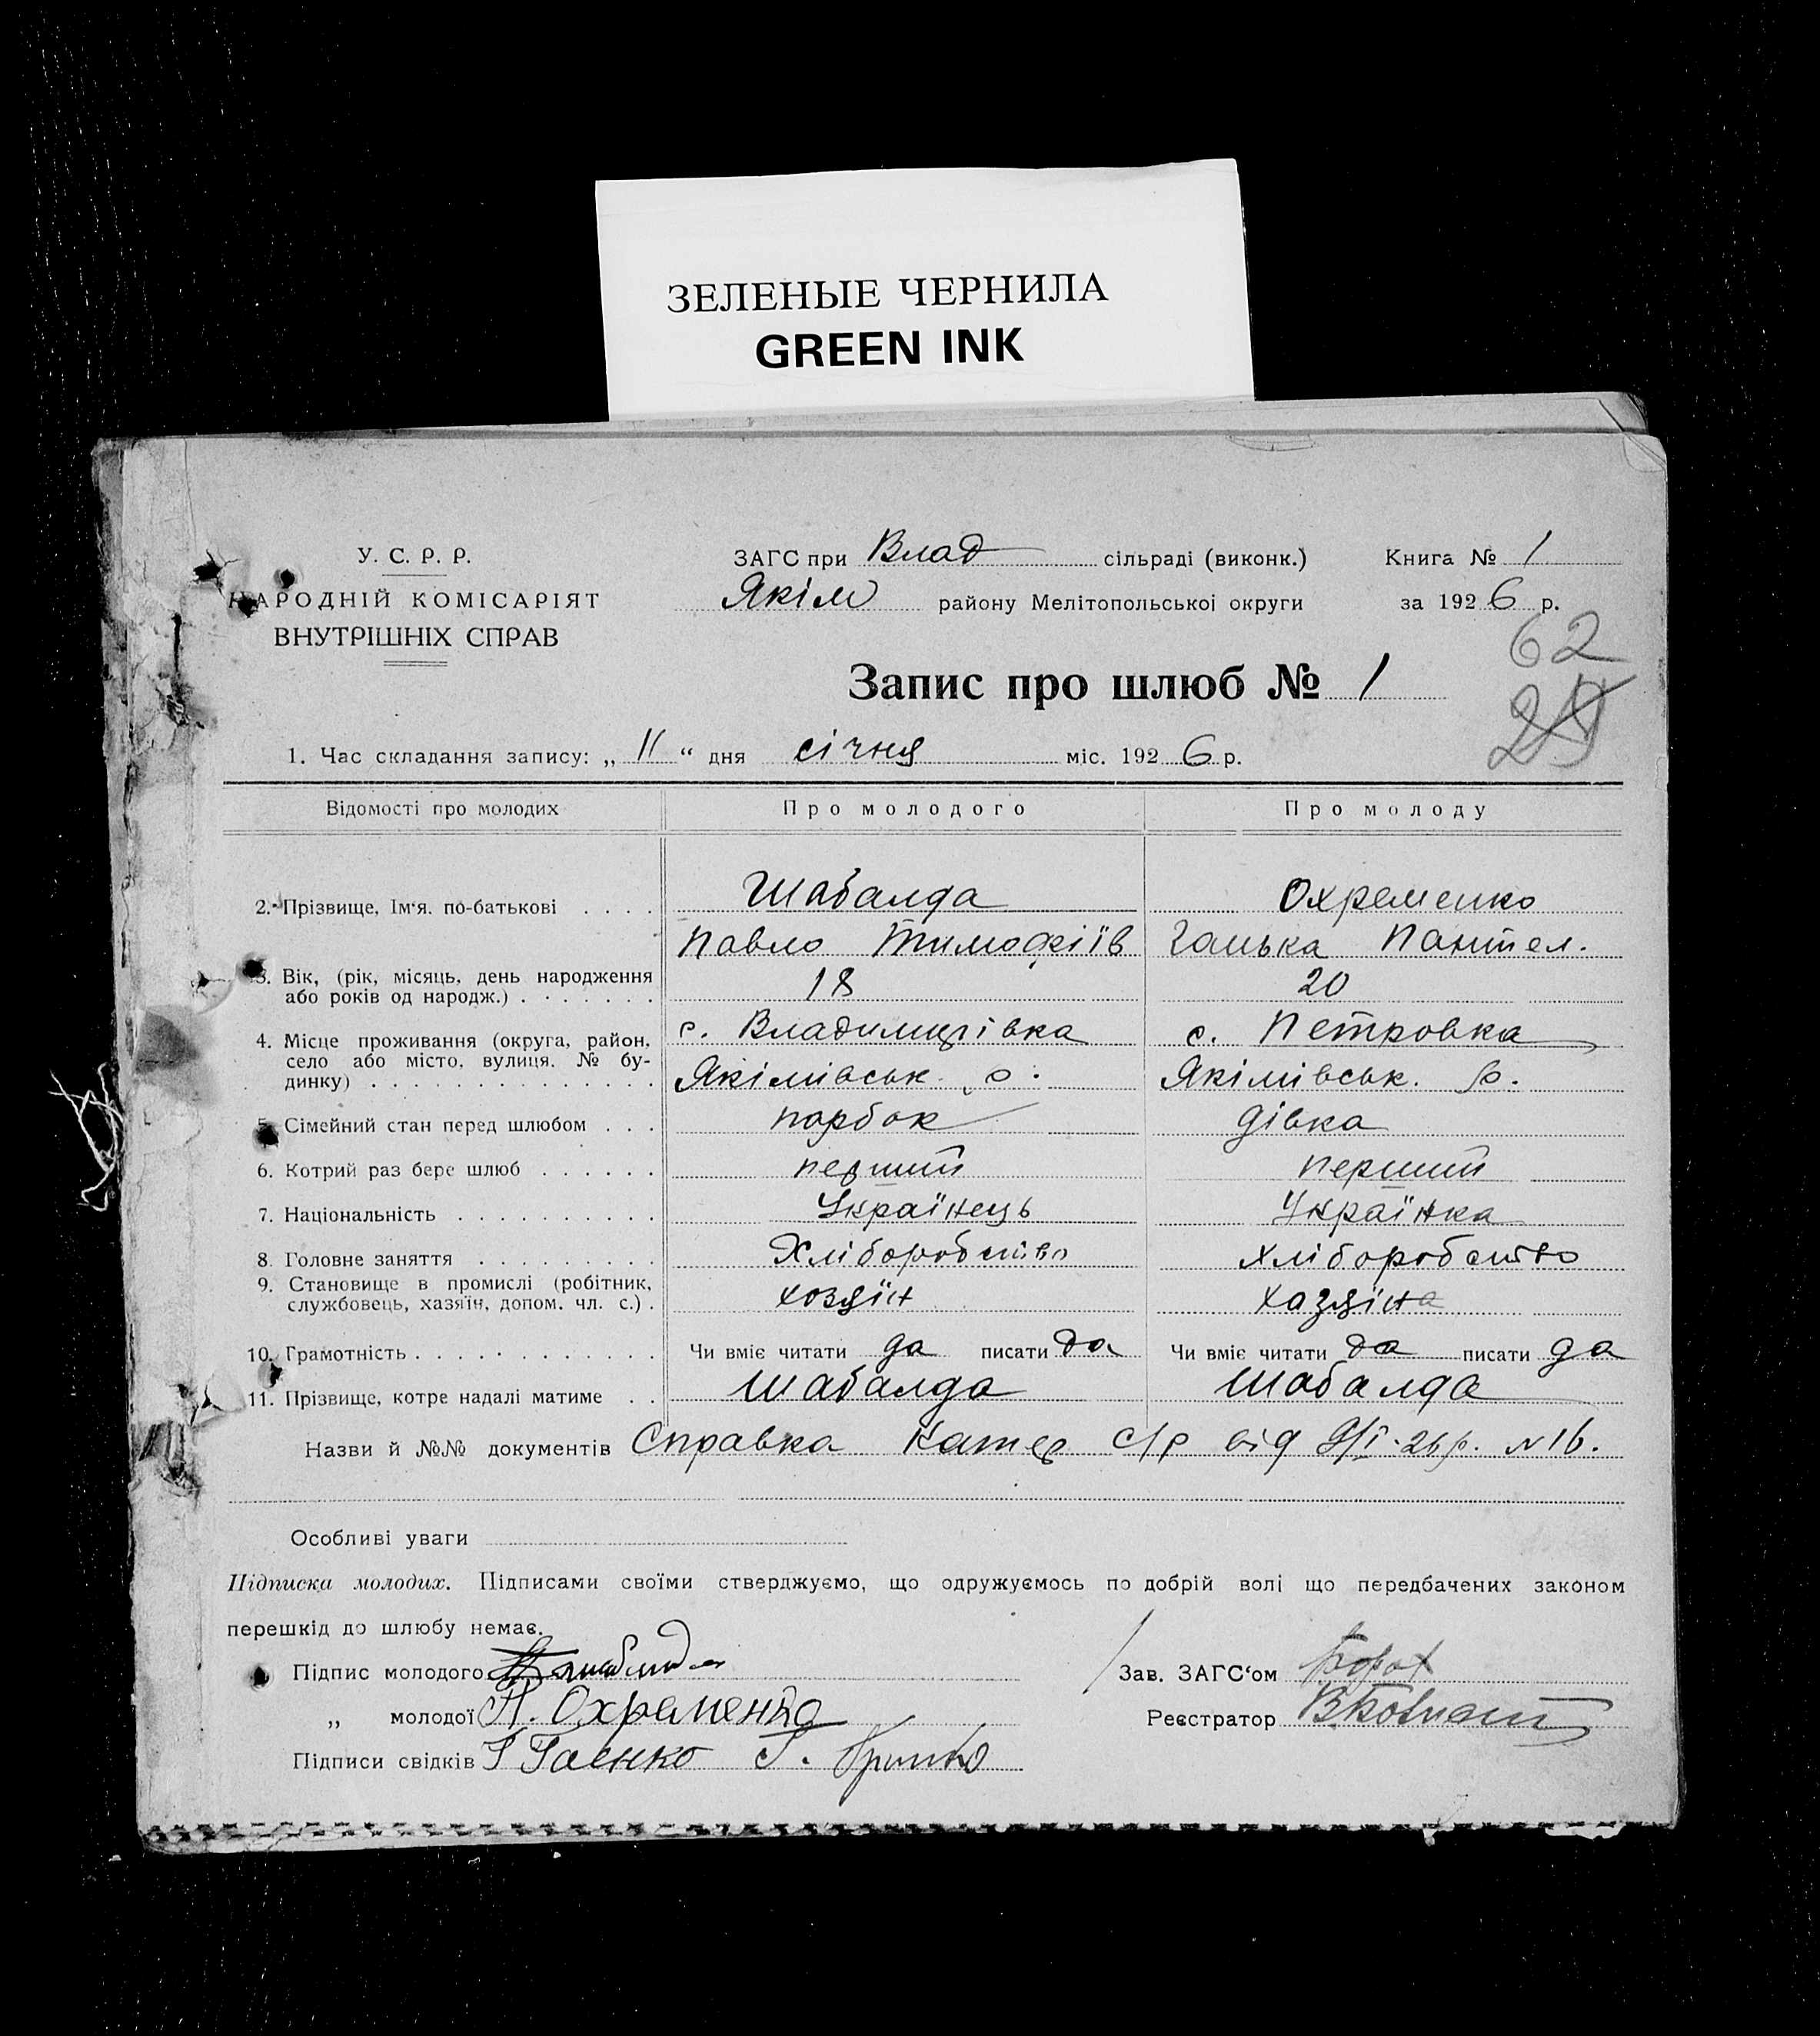 ЗЕЛЕНЫЕ ЧЕРНИЛА
GREEN INK
У. С. Р. Р.
НАРОДНІЙ КОМІСАРІЯТ
ВНУТРІШНІХ СПРАВ
ЗАГС при Влад сільраді (виконк.)
Якім району Мелітопольської округи
Книга № 1
за 1926 р.
62
Запис про шлюб № 1
1. Час складання запису: „ 11 “ дня січня міс. 1926 р.
Відомості про молодих Про молодого Про молоду
2. Прізвище, Ім‘я. по-батькові . . . . Шабалда Охременко
Павло Тимофіїв Ганька Пантел.
3. Вік, (рік, місяць, день народження 18 20
або років од народж.) . . . . . . .
4. Місце проживання (округа, район, с. Владимирівка с. Петровка
село або місто, вулиця. № бу-
динку) . . . . . . . . . . . . . . Якімівськ. р. Якімівськ. р.
5. Сімейний стан перед шлюбом . . . парбок дівка
6. Котрий раз бере шлюб . . . . . . перший перший
7. Національність . . . . . . . . . . Українець Українка
8. Головне заняття . . . . . . . . . Хліборобство хліборобство
9. Становище в промислі (робітник,
службовець, хазяїн, допом. чл. с.) . хозяїн хазяїна
10. Грамотність . . . . . . . . . . . . Чи вміє читати да писати да Чи вміє читати да писати да
11. Прізвище, котре надалі матиме . . Шабалда Шабалда
Назви й №№ документів Справка Катер с/р від 9/I-26 р. № 16.
Особливі уваги
Підписка молодих. Підписами своїми стверджуємо, що одружуємось по добрій волі що передбачених законом
перешкід до шлюбу немає.
Підпис молодого
„ молодої Охраменко
Підписи свідків Гаєнко
Зав. ЗАГС‘ом
Реєстратор